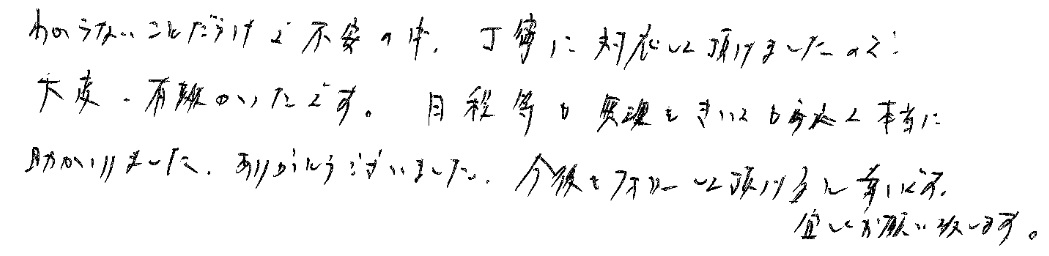 わからないことだらけで不安の中、丁寧に対応して頂けましたので
大変、有難かったです。日程等も無理をきいても頂いて本当に
助かりました。ありがとうございました。今後もフォローして頂けると幸いです。
宜しくお願い致します。